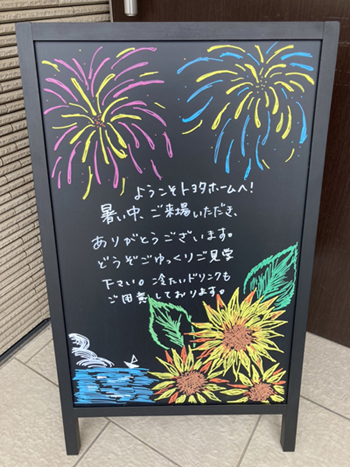 ようこそトヨタホームへ!
暑い中、ご来場いただき、
ありがとうございます。
どうぞごゆっくりご見学
下さい。冷たいドリンクも
ご用意しております。